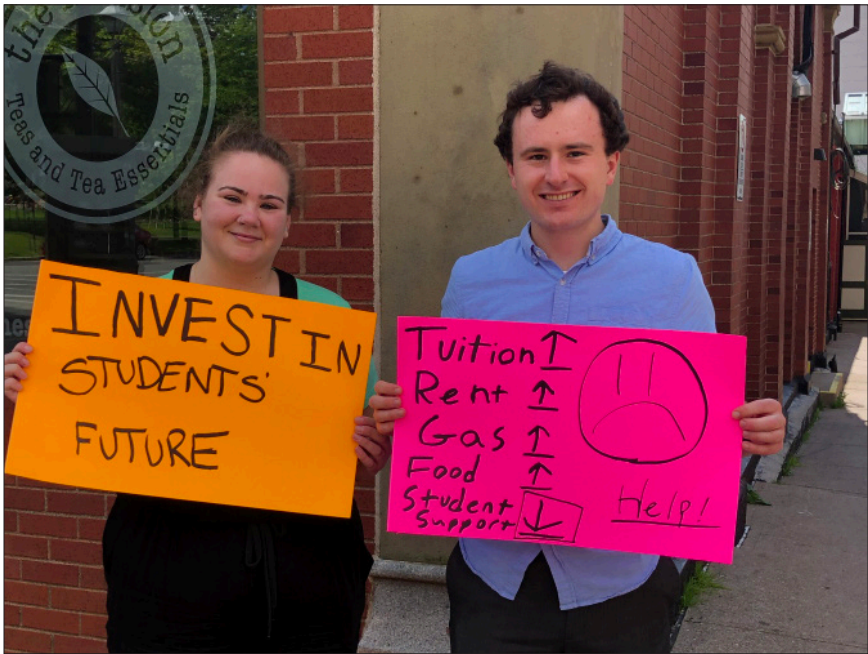 the
Teas and Tea Essentials
INVEST IN
STUDENTS'
FUTURE
Tuition ↑
Rent ↑
Gas ↑
Food ↑
Student
Support ↓
Help!